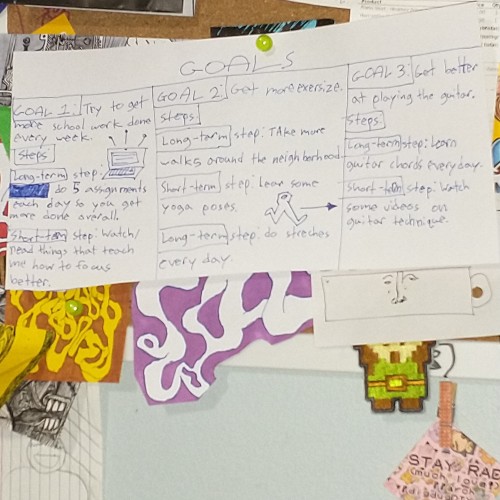 GOALS
GOAL 1: Try to get
more school work done
every week.
Steps:
Long-term step:
do 5 assignments
each day so you get
more done overall.
Short-term step: Watch/
read things that teach
me how to focus
better.
GOAL 2: Get more exersize.
Steps:
Long-tarm step: TAke more
walks around the neighborhood
Short-term step: Learn some
yoga poses.
Long-term step: do streches
every day.
GOAL 3: Get better
at playing the guitar.
Steps:
Long-term step: Learn
guitar chords everyday.
Short-term step: Watch
some videos on
guitar technique.
STAY RAD